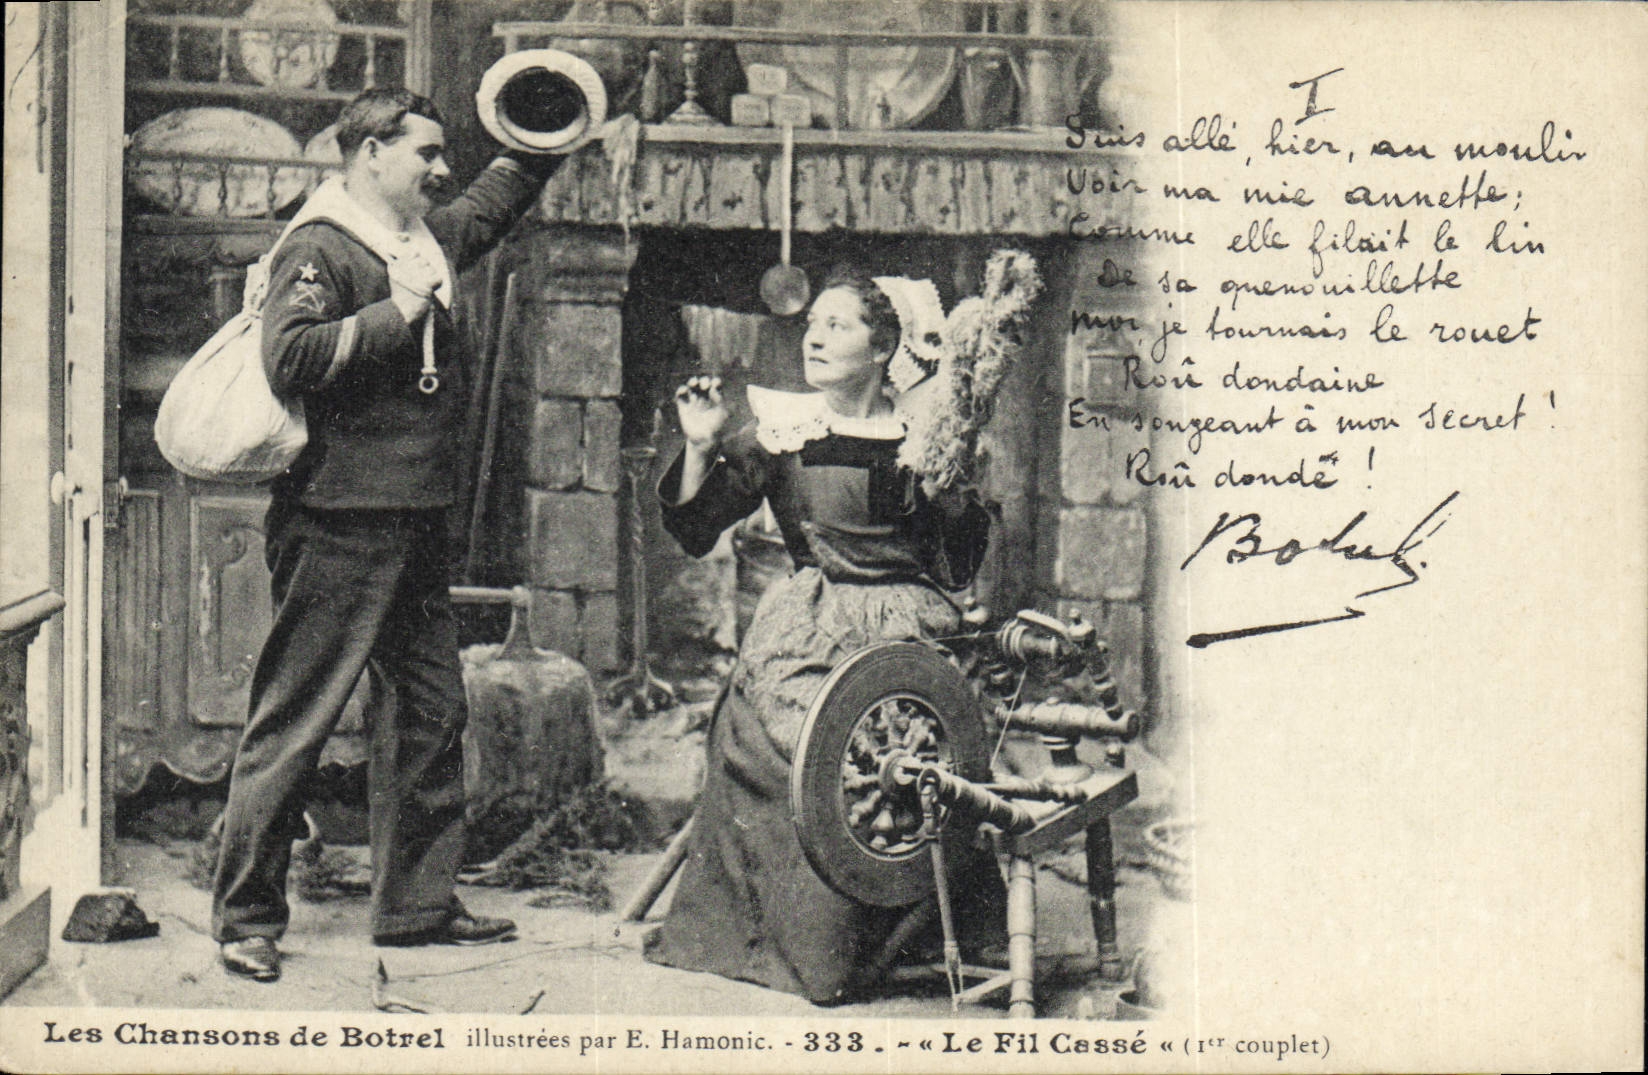 I
Suis allé, hier, au moulin
Voir ma mie annette;
Comme elle filait le lin
De sa quenouillette
Moi, je tournais le rouet
Roû dondaine
En songeant à mon secret !
Roû dondé !
Botrel
Les Chansons de Botrel illustrées par E. Hamonic. - 333. - « Le Fil Cassé « (1er couplet)